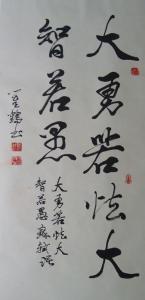 大勇若怯大
智若愚
大勇若怯大
智若愚蘇軾語